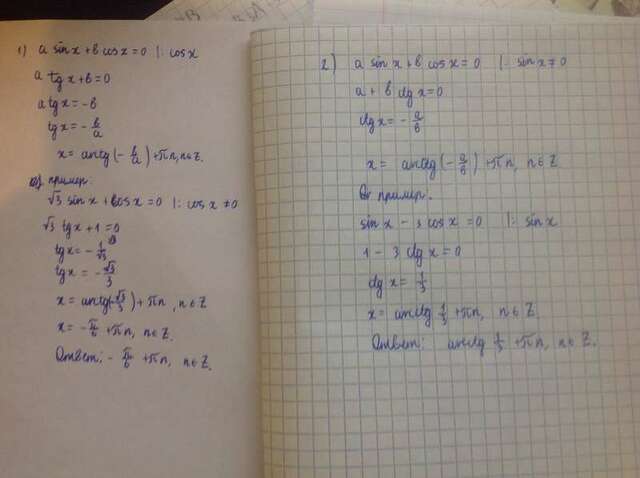 1) a sin x + b cos x = 0 |: cos x
a tg x + b = 0
a tg x = -b
tg x = - b/a
x = arctg (- b/a) + πn, n ∈ Z.
пример:
√3 sin x + cos x = 0 |: cos x ≠ 0
√3 tg x + 1 = 0
tg x = - 1/√3
tg x = - √3/3
x = arctg(-√3/3) + πn, n ∈ Z
x = - π/6 + πn, n ∈ Z.
Ответ: - π/6 + πn, n ∈ Z.
2) a sin x + b cos x = 0 |: sin x ≠ 0
a + b ctg x = 0
ctg x = - a/b
x = arcctg (- a/b) + πn, n ∈ Z
пример.
sin x - 3 cos x = 0 |: sin x
1 - 3 ctg x = 0
ctg x = 1/3
x = arcctg 1/3 + πn, n ∈ Z
Ответ: arcctg 1/3 + πn, n ∈ Z.